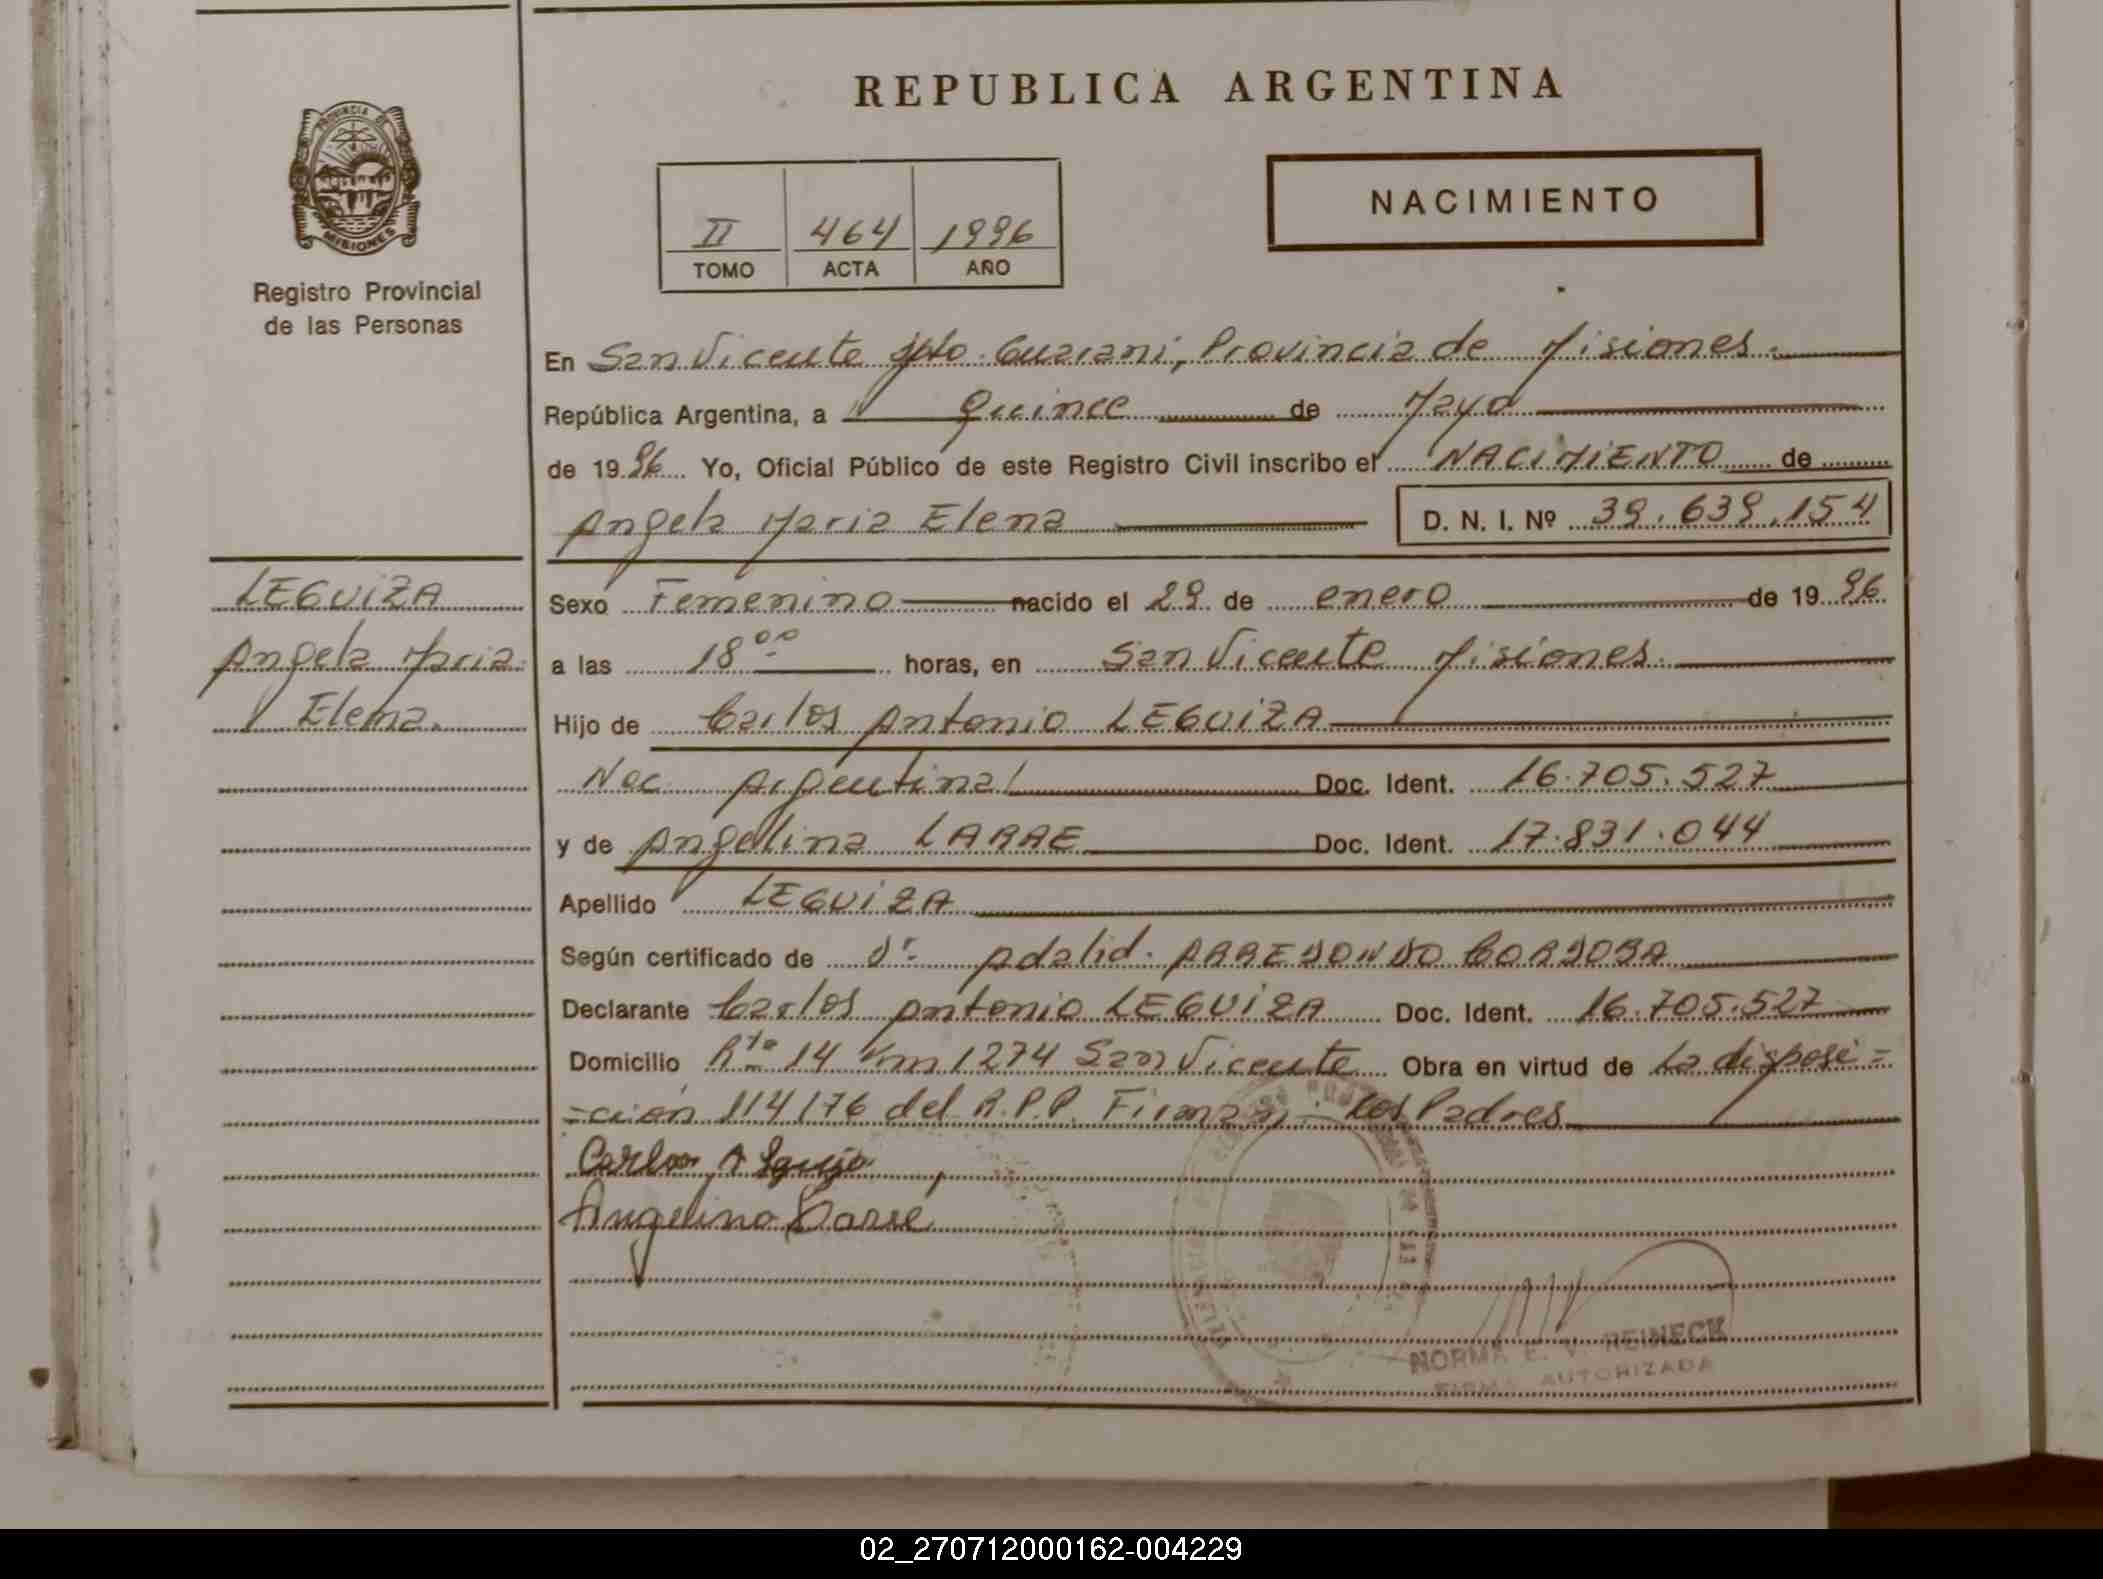 REPUBLICA ARGENTINA
PROVINCIA DE
MISIONES
Registro Provincial
de las Personas
II 464 1996
TOMO ACTA AÑO
NACIMIENTO
En San Vicente Dpto. Guarani, Provincia de Misiones.
República Argentina, a Quince de Mayo
de 1996 Yo, Oficial Público de este Registro Civil inscribo el NACIMIENTO de
Angela Maria Elena D. N. I. Nº 39.639.154
LEGUIZA
Angela Maria
Elena.
Sexo Femenino nacido el 29 de enero de 1996
a las 18ºº horas, en San Vicente Misiones.
Hijo de Carlos Antonio LEGUIZA
Nac. Argentina Doc. Ident. 16.705.527
y de Angelina LARRE Doc. Ident. 17.831.044
Apellido LEGUIZA
Según certificado de Dr. Adalid. ARREDONDO CORDOBA
Declarante Carlos Antonio LEGUIZA Doc. Ident. 16.705.527
Domicilio Rta 14 Km 1274 San Vicente Obra en virtud de La disposi=
=ción 114/76 del R.P.P. Firman: Los Padres
Carlos A
Angelina Larre
NORMA E. V. REINECK
FIRMA AUTORIZADA
02_270712000162-004229